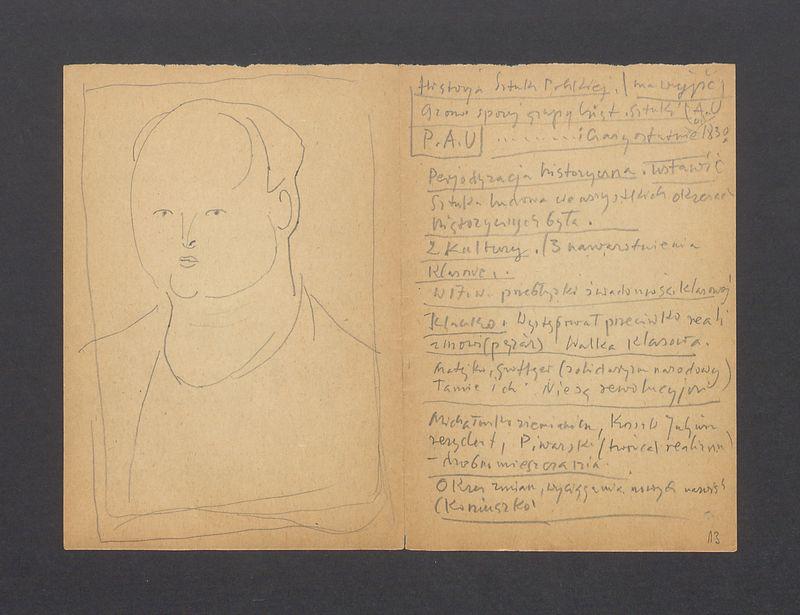 Historja Sztuki Polskiej. / ma wyjść
Grono sporej grupy książ. Sztuki A.U
P.A.U ......... i Czasy ostatnie 1830
Perjodyzacja historyczna. wstawić
Sztuka ludowa we wszystkich okresach
historycznych była.
2 Kultury. / 3 nawarstwienia
klasowe.
W 17. w. przebłyski świadomości klasowej
Kłaczko. Występował przeciwko reali
zmowi (pejzaż) Walka klasowa.
Matejko, Grottger (solidaryzm narodowy)
Tamie ich. Nie są rewolucyjni
Michałowski ziemianin, Kossak Juljusz
rezydent, Piwarski (twórca realizmu)
- drobnomieszczania.
Okres zmian, wyciągania nowych nazwisk
(Koniuszko)
13